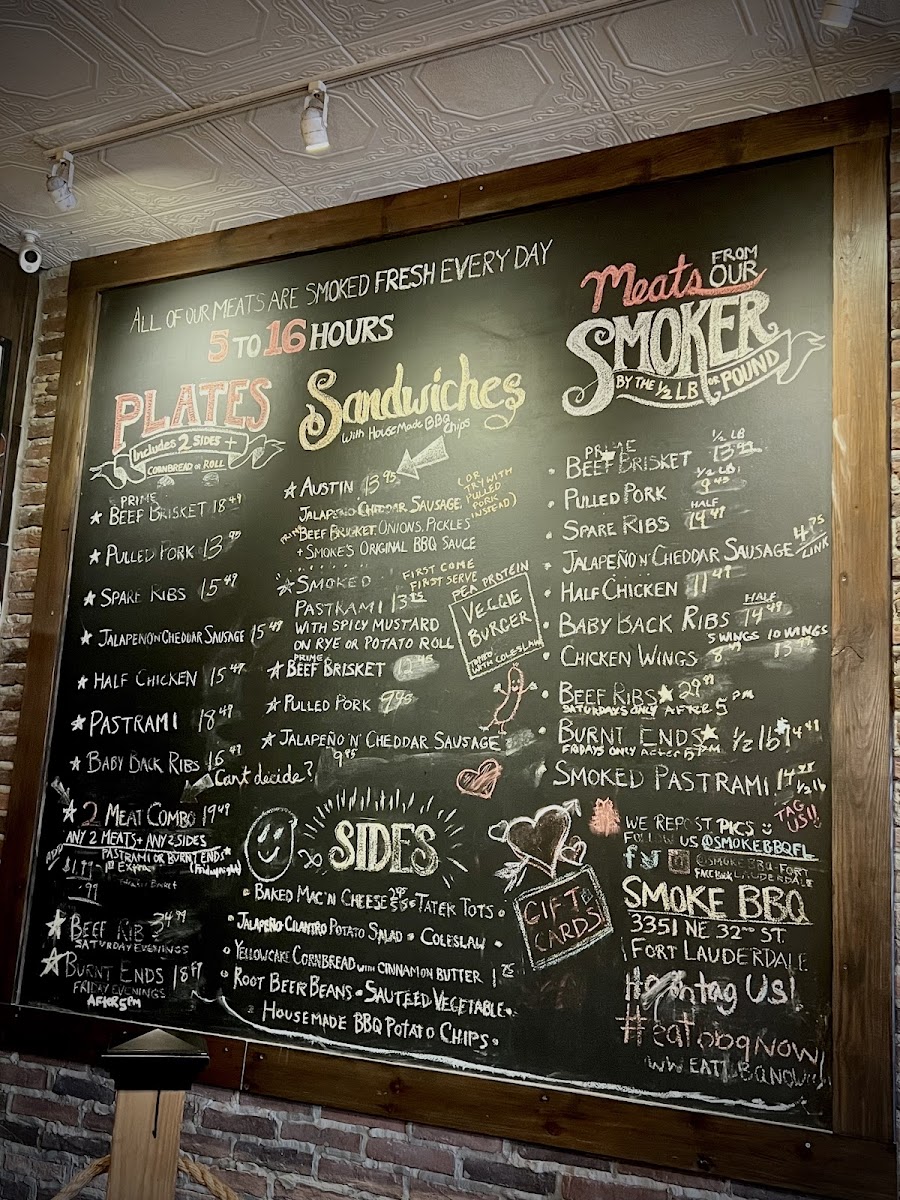 ALL OF OUR MEATS ARE SMOKED FRESH EVERY DAY
5 TO 16 HOURS
PLATES
Includes 2 SIDES +
CORNBREAD OR ROLL
PRIME
BEEF BRISKET 18 49
PULLED PORK 13
SPARE RIBS 15 49
JALAPENO'N'CHEDDAR SAUSAGE 15 49
HALF CHICKEN 15 49
PASTRAMI 18 49
BABY BACK RIBS 16 49
Cant decide?
2 MEAT COMBO 19 49
ANY 2 MEATS + ANY 2 SIDES
PASTRAMI OR BURNT ENDS
BEEF RIB
SATURDAY EVENINGS
BURNT ENDS 18
FRIDAY EVENINGS
AFTER 5PM
Sandwiches
with HouseMade BBQ
Chips
AUSTIN 13 95
(OR
TRY WITH
PULLED
PORK
INSTEAD)
JALAPENO CHEDDAR SAUSAGE
PRIME BEEF BRISKET, ONIONS, PICKLES
+ SMOKE'S ORIGINAL BBQ SAUCE
FIRST COME
FIRST SERVE
SMOKED
PASTRAMI
WITH SPICY MUSTARD
ON RYE OR POTATO ROLL
PRIME
BEEF BRISKET
PULLED PORK 9 95
JALAPEÑO 'N' CHEDDAR SAUSAGE
9 95
PEA PROTEIN
VEGGIE
BURGER
TOPPED
WITH COLESLAW
SIDES
BAKED MAC'N CHEESE
TATER TOTS
JALAPEÑO CILANTRO POTATO SALAD • COLESLAW
YELLOWCAKE CORNBREAD WITH CINNAMON BUTTER 1 75
ROOT BEER BEANS • SAUTEED VEGETABLE
HOUSEMADE BBQ POTATO CHIPS
GIFT
CARDS
Meats FROM
OUR
SMOKER
BY THE 1/2 LB OR POUND
PRIME
1/2 LB
BEEF BRISKET
1/2 LB
PULLED PORK 9
HALF
SPARE RIBS 14 49
JALAPEÑO'N'CHEDDAR SAUSAGE 4 75
LINK
HALF CHICKEN 11 49
HALF
BABY BACK RIBS 14 49
5 WINGS 10 WINGS
CHICKEN WINGS
BEEF RIBS 29
SATURDAYS ONLY AFTER 5 PM
BURNT ENDS 1/2 lb
FRIDAYS ONLY AFTER 5 PM
SMOKED PASTRAMI 14 1/2 lb
TAG
US!!
WE REPOST PICS
FOLLOW US @SMOKEBBQFL
@SMOKE BBQ-FORT
FACEBOOK LAUDERDALE
SMOKE BBQ
3351 NE 32ND ST.
FORT LAUDERDALE
Hashtag US!
#eatbbqNOW